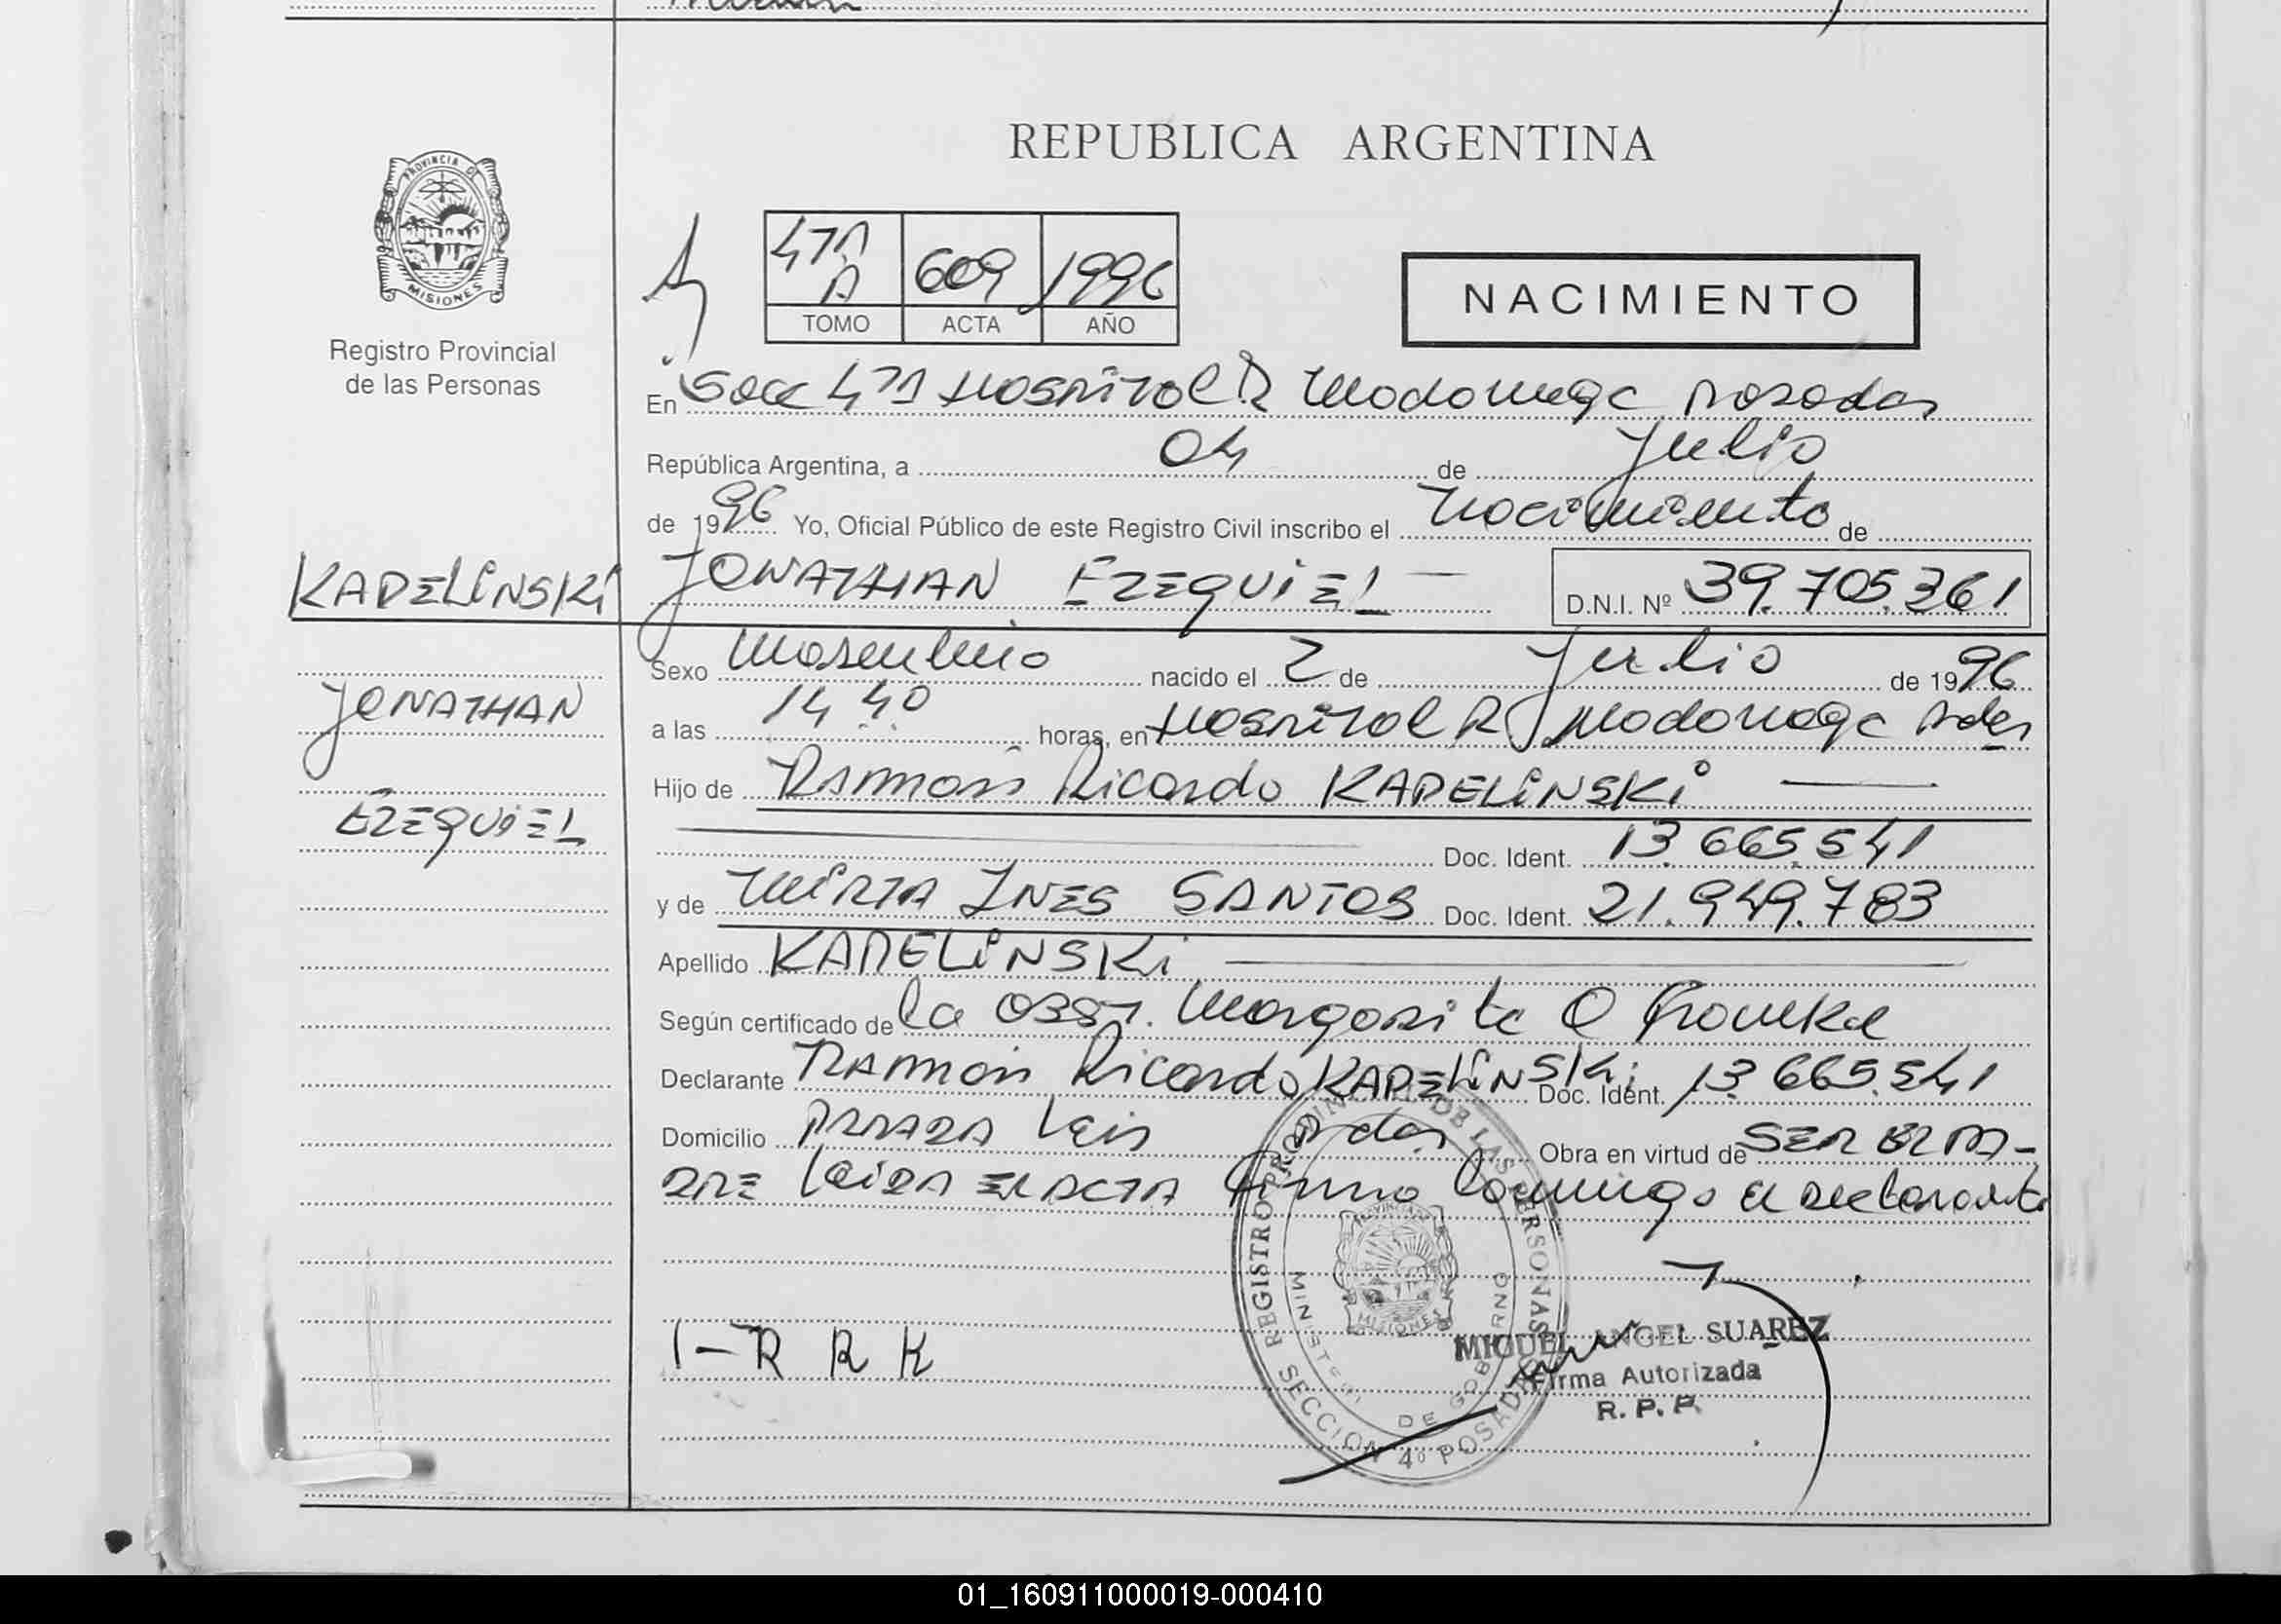 REPUBLICA ARGENTINA
PROVINCIA DE
MISIONES
Registro Provincial
de las Personas
4TA A 609 1996
TOMO ACTA AÑO
NACIMIENTO
En Secc 4TA Hospital R Madariaga Posadas
República Argentina, a 04 de Julio
de 1996 Yo, Oficial Público de este Registro Civil inscribo el Nacimiento de
KAPELINSKi JONATHAN EZEQUiEL D.N.I. Nº 39.705.361
Sexo Masculino nacido el 2 de Julio de 1996
JONATHAN
a las 14 40 horas, en Hospital R Madariaga Pdas
Hijo de Ramón Ricardo KAPELiNSKi
EZEQUiEL
Doc. Ident. 13.665.541
y de MiRTA INES SANTOS Doc. Ident. 21.949.783
Apellido KAPELiNSKi
Según certificado de la OBST. Margarita
Declarante Ramón Ricardo KAPELiNSKi Doc. Ident. 13.665.541
Domicilio Pdas Obra en virtud de SER EL PA-
DRE Leida EL ACTA Firma Conmigo el declarante
REGISTRO PROVINCIAL DE LAS PERSONAS
MINISTERIO DE GOBIERNO
PROVINCIA DE
MISIONES
SECCION 4º POSADAS
1-R R K
MIGUEL ANGEL SUAREZ
Firma Autorizada
R. P. P.
01_160911000019-000410